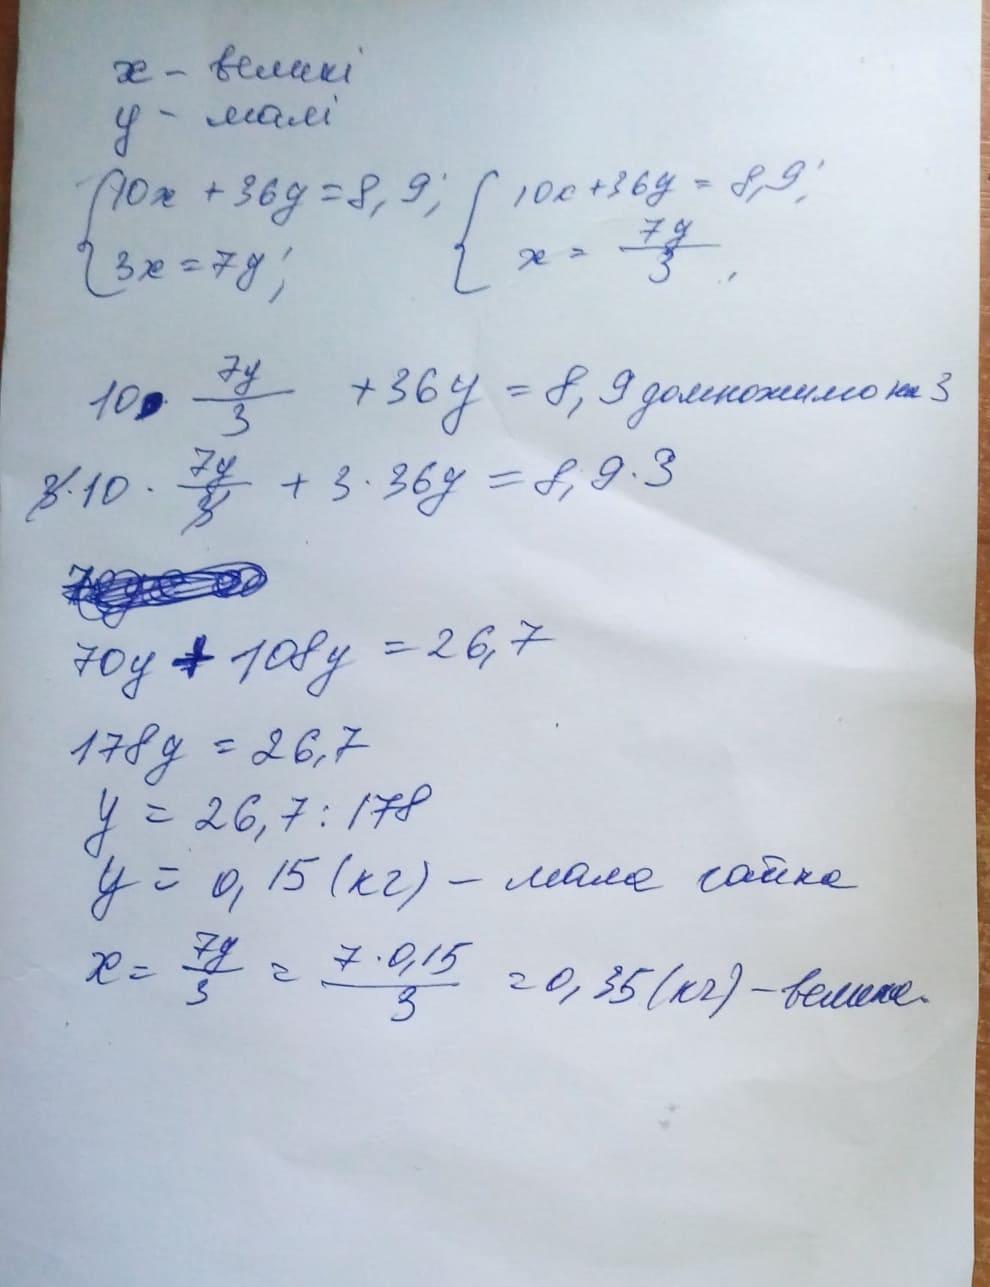 x - великі
y - малі
{ 10x + 36y = 8,9; { 10x + 36y = 8,9;
3x = 7y; x = 7y/3,
10 · 7y/3 + 36y = 8,9 домножимо на 3
3 · 10 · 7y/3 + 3 · 36y = 8,9 · 3
70y + 108y = 26,7
178y = 26,7
y = 26,7 : 178
y = 0,15 (кг) - мала гайка
x = 7y/3 = 7 · 0,15/3 = 0,35 (кг) - велика.